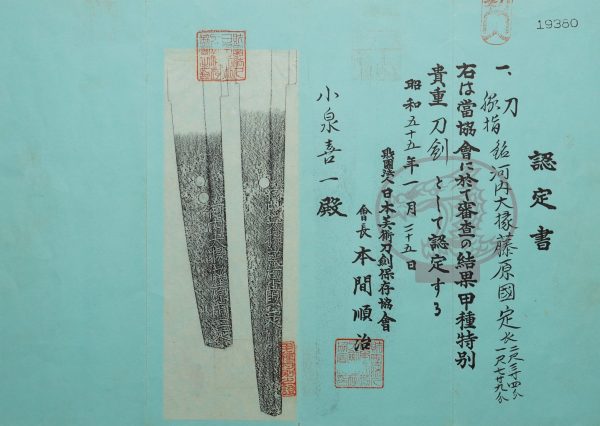 19380
認定書
一、刀 銘 河内大掾藤原國定 長二尺三寸四分
脇指 長一尺七寸九分
右は當協會に於て審査の結果甲種特別
貴重刀劍として認定する
昭和五十五年一月二十五日
財團法人日本美術刀劍保存協會
會長 本間順治
小泉喜一殿